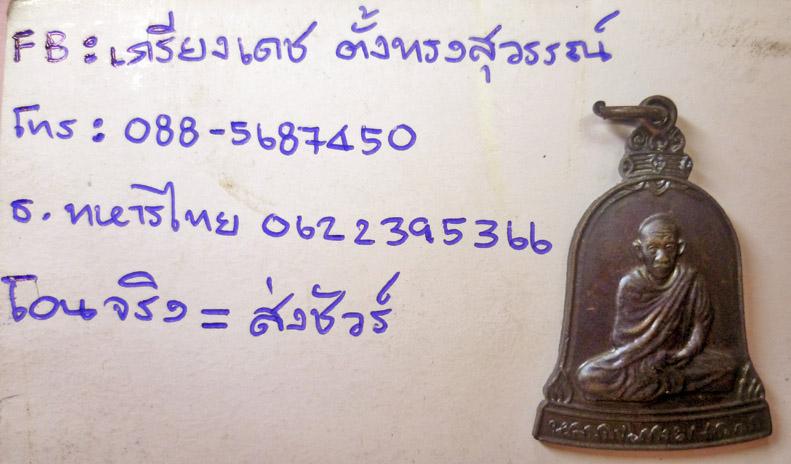 FB: เกรียงเดช ตั้งทรงสุวรรณ์
โทร: 088-5687450
ธ. ทหารไทย 0622395366
โอนจริง = ส่งชัวร์